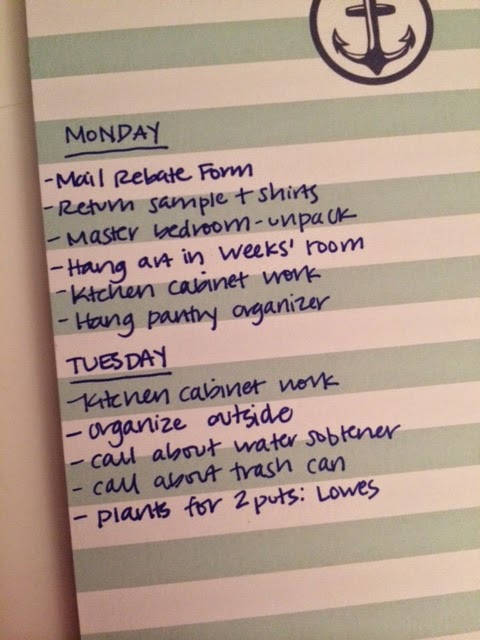 MONDAY
- Mail Rebate Form
- Return sample + shirts
- Master bedroom - unpack
- Hang art in Weeks' room
- Kitchen cabinet work
- Hang pantry organizer
TUESDAY
- Kitchen cabinet work
- organize outside
- call about water sobtener
- call about trash can
- plants for 2 pots: Lowes